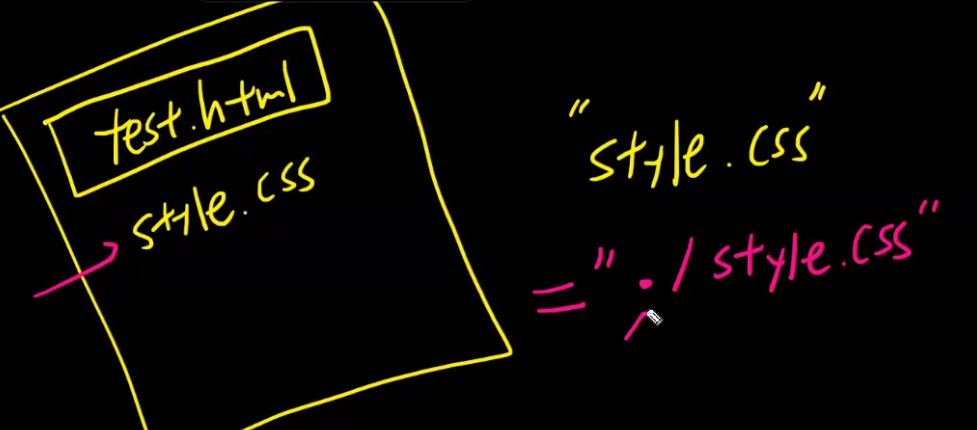 test.html
style.css
"style.css"
="./style.css"